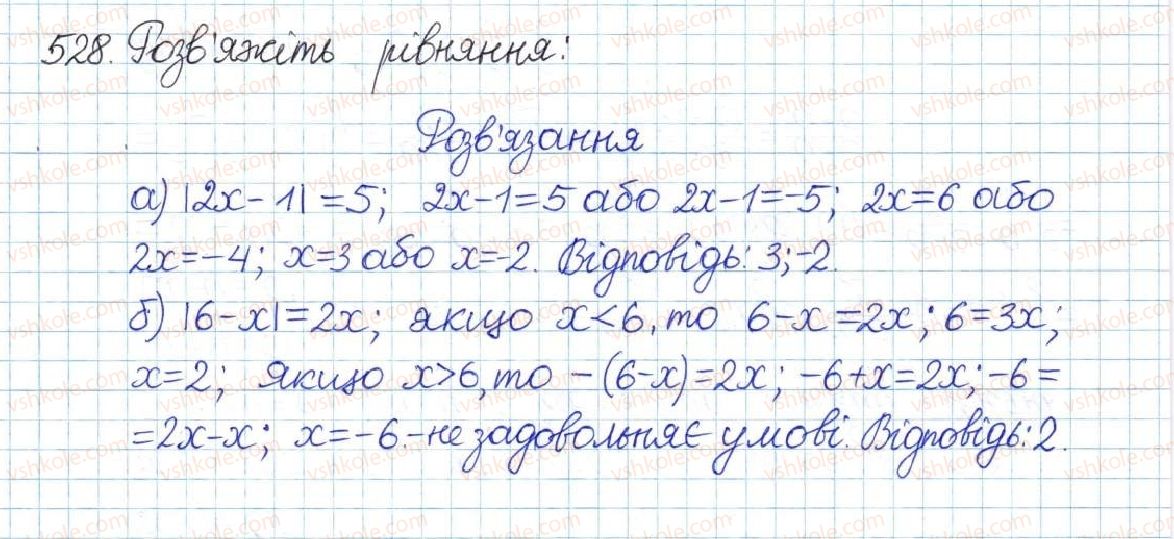 528. Розв'яжіть рівняння:
Розв'язання
а) |2x-1|=5; 2x-1=5 або 2x-1=-5; 2x=6 або
2x=-4; x=3 або x=-2. Відповідь: 3;-2.
б) |6-x|=2x; якщо x<6, то 6-x=2x; 6=3x;
x=2; Якщо x>6, то -(6-x)=2x; -6+x=2x; -6=
=2x-x; x=-6.-не задовольняє умові. Відповідь: 2.